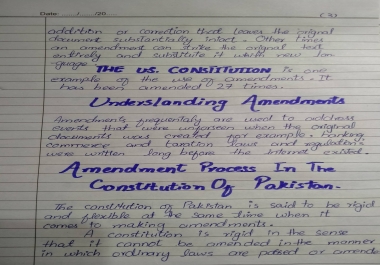 Date: / /20
addition or correction that leaves the original
document substantially intact. Other times
an amendment can strike the original text
entirely and substitute it with new lan-
guage
THE U.S. CONSTITUTION is one
example of the use of amendments. It
has been amended 27 times.
Understanding Amendments
Amendments frequently are used to address
events that were unforseen when the original
documents was created for example. Banking
commerce and taxation laws and regulations
were written long before the internet existed.
Amendment Process In The
Constitution Of Pakistan.
The constitution of Pakistan is said to be rigid
and flexible at the same time when it
comes to making amendments.
A constitution is rigid in the sense
that it cannot be amended in the manner
in which ordinary laws are passed or amende